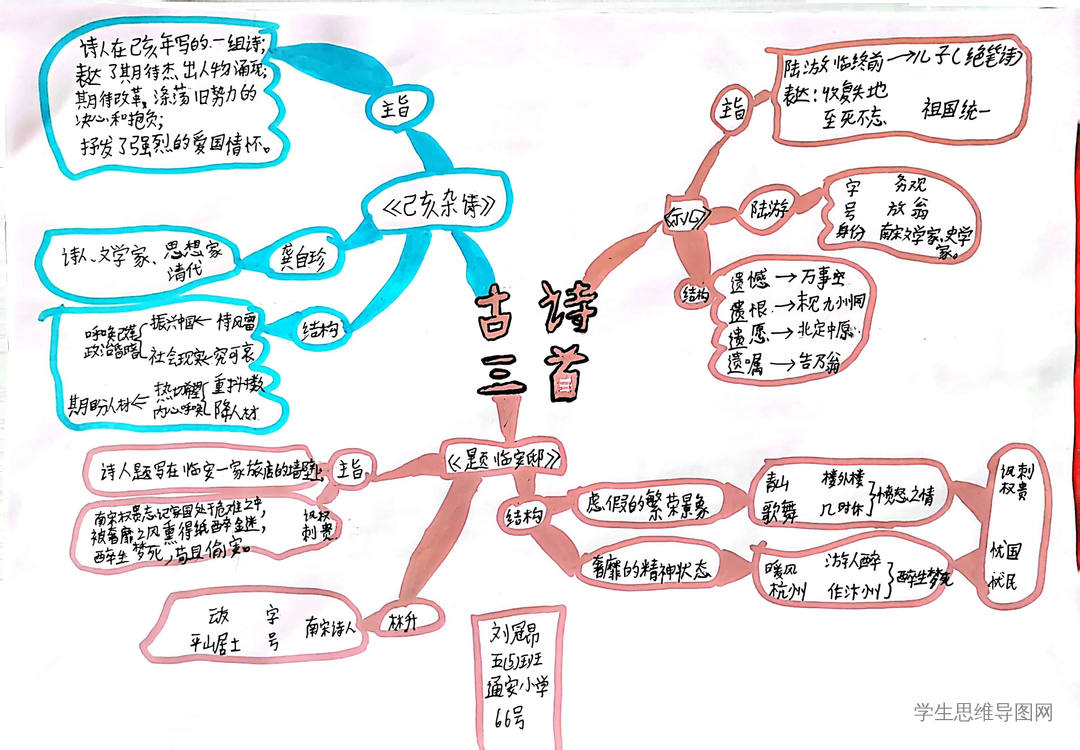 诗人在己亥年写的一组诗;
表达了期待杰出人物涌现;
期待改革,涤荡旧势力的
决心和抱负;
抒发了强烈的爱国情怀。
主旨
《己亥杂诗》
诗人、文学家、思想家
清代
龚自珍
结构
呼唤改革
政治昏暗
振兴中国←恃风雷
社会现实←究可哀
期盼人材←
热切希望
内心呼唤
重抖擞
降人材
古诗
三首
陆游临终前→儿子(绝笔诗)
表达:收复失地
至死不忘
祖国统一
主旨
《示儿》
陆游
字 务观
号 放翁
身份 南宋文学家,史学
家。
结构
遗憾→万事空
遗恨→未见九州同
遗愿→北定中原
遗嘱→告乃翁
《题临安邸》
主旨
诗人题写在临安一家旅店的墙壁;
南宋权贵忘记家国处于危难之中,
被奢靡之风熏得纸醉金迷,
醉生梦死,苟且偷安。
讽权
刺贵
林升
动 字
平山居士 号
南宋诗人
结构
虚假的繁荣景象
青山 楼外楼
歌舞 几时休
愤怒之情
奢靡的精神状态
暖风 游人醉
杭州 作汴州
醉生梦死
讽刺
权贵
忧国
忧民
五(5)班
通安小学
66号
学生思维导图网